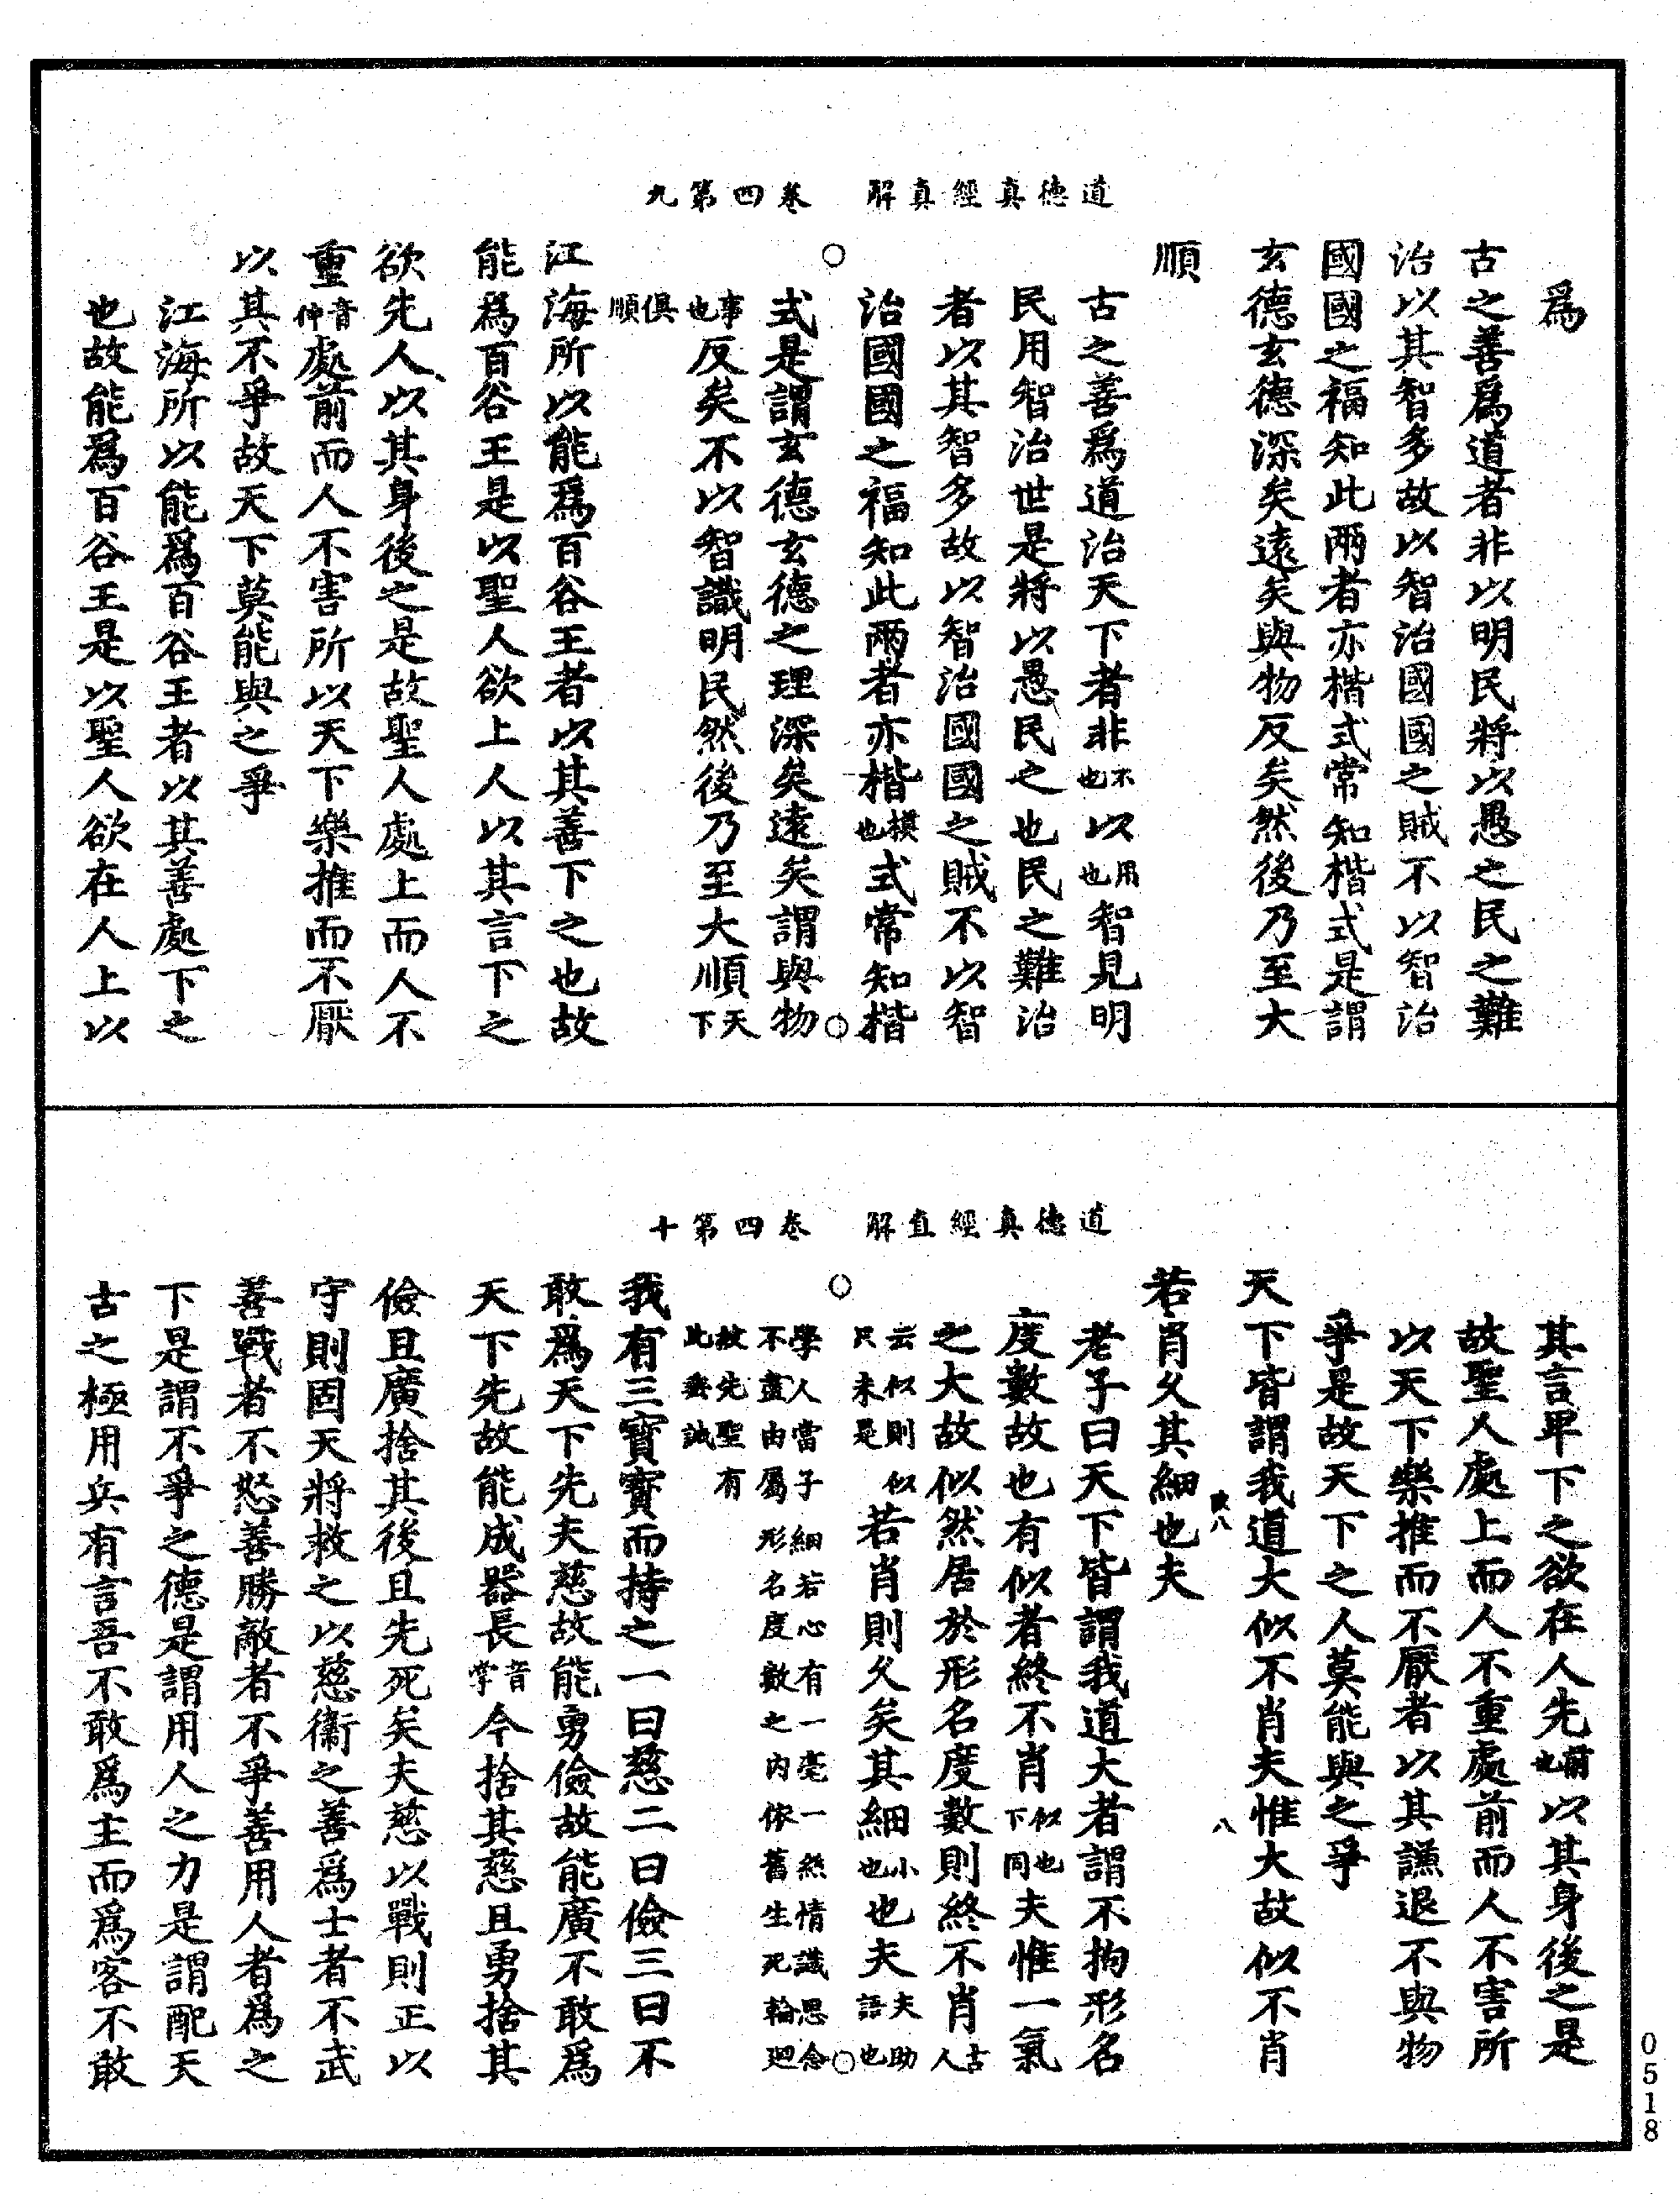 道德真經真解 卷四第九
爲
古之善爲道者非以明民將以愚之民之難
治以其智多故以智治國國之賊不以智治
國國之福知此兩者亦楷式常知楷式是謂
玄德玄德深矣遠矣與物反矣然後乃至大
順
古之善爲道治天下者非不也以用也智見明
民用智治世是將以愚民之也民之難治
者以其智多故以智治國國之賊不以智
治國國之福知此兩者亦楷模也式常知楷
式是謂玄德玄德之理深矣遠矣謂與物
事也反矣不以智識明民然後乃至大順天下
俱順
江海所以能爲百谷王者以其善下之也故
能爲百谷王是以聖人欲上人以其言下之
欲先人以其身後之是故聖人處上而人不
重音仲處前而人不害所以天下樂推而不厭
以其不爭故天下莫能與之爭
江海所以能爲百谷王者以其善處下之
也故能爲百谷王是以聖人欲在人上以
道德真經直解 卷四第十
其言卑下之欲在人先前也以其身後之是
故聖人處上而人不重處前而人不害所
以天下樂推而不厭者以其謙退不與物
爭是故天下之人莫能與之爭
天下皆謂我道大似不肖夫惟大故似不肖
若肖久其細也夫
八
老子曰天下皆謂我道大者謂不拘形名
度數故也有似者終不肖似也下同夫惟一氣
之大故似然居於形名度數則終不肖古人
云似則似只未是若肖則久矣其細小也也夫夫助語也
學人當子細若心有一毫一絲情識思念
不盡由屬形名度數之內依舊生死輪迴
故先聖有此垂誡
我有三寶寶而持之一曰慈二曰儉三曰不
敢爲天下先夫慈故能勇儉故能廣不敢爲
天下先故能成器長音掌今捨其慈且勇捨其
儉且廣捨其後且先死矣夫慈以戰則正以
守則固天將救之以慈衞之善爲士者不武
善戰者不怒善勝敵者不爭善用人者爲之
下是謂不爭之德是謂用人之力是謂配天
古之極用兵有言吾不敢爲主而爲客不敢
0518